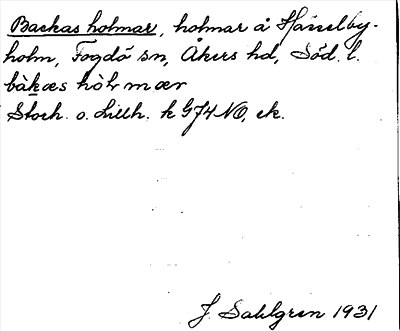 Backas holmar, holmar å Hässelby-
holm, Fogdö sn, Åkers hd, Söd. l.
bàk̲æs hòlmær
Stock. o. Lillh. k G74 NO, ek.
J. Sahlgren 1931